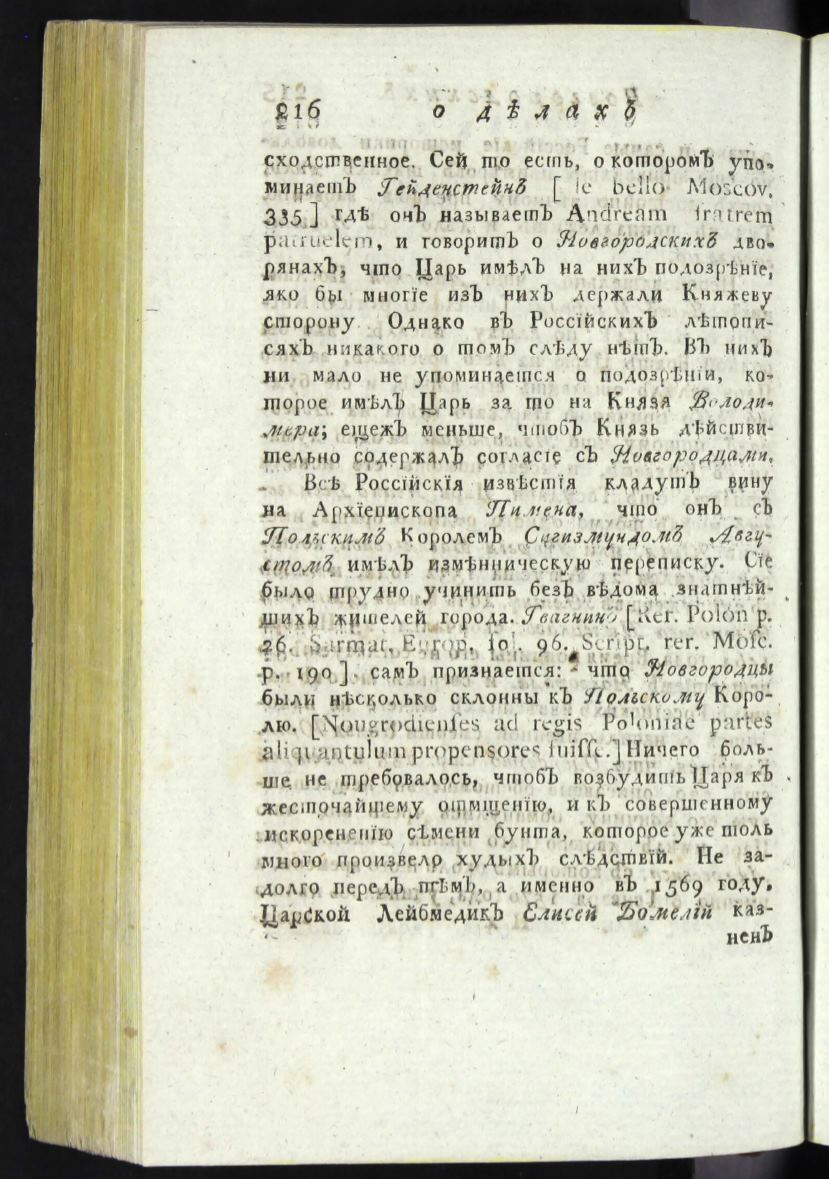 216 о дѣлахъ
сходственное. Сей то есть, о которомъ упо-
минаетъ Гейденстейнъ [de bello Moscov.
335] гдѣ онъ называетъ Andream fratrem
patruelem, и говоритъ о Новгородскихъ дво-
рянахъ, что Царь имѣлъ на нихъ подозрѣнїе,
яко бы многїе изъ нихъ держали Княжеву
сторону. Однако въ Россїйскихъ лѣтопи-
сяхъ никакого о томъ слѣду нѣтъ. Въ нихъ
ни мало не упоминается о подозрѣнїи, ко-
торое имѣлъ Царь за то на Князя Володи-
мера; ещежъ меньше, чтобъ Князь дѣйстви-
тельно содержалъ согласїе съ Новгородцами.
Всѣ Россїйскїя извѣстїя кладутъ вину
на Архїепископа Пимена, что онъ съ
Польскимъ Королемъ Сигизмундомъ Авгу-
стомъ имѣлъ измѣнническую переписку. Сїе
было трудно учинить безъ вѣдома знатнѣй-
шихъ жителей города. Гвагнинъ [Rer. Polon p.
26. Sarmat. Europ. fol. 96. Script. rer. Mosc.
p. 190]. самъ признается: что Новгородцы
были нѣсколько склонны къ Польскому Коро-
лю. [Nougrodienses ad regis Poloniae partes
aliquantulum propensores fuisse.] Ничего боль-
ше не требовалось, чтобъ возбудить Царя къ
жесточайшему отмщенїю, и къ совершенному
искорененїю сѣмени бунта, которое уже толь
много произвело худыхъ слѣдствїй. Не за-
долго передъ тѣмъ, а именно въ 1569 году,
Царской Лейбмедикъ Елисей Бомелїй каз-
ненъ